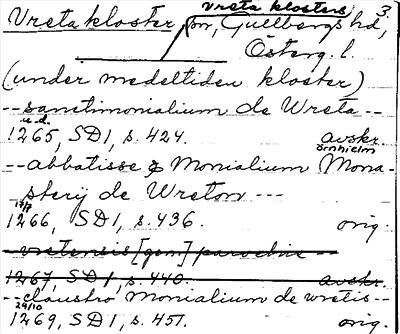 Vreta klosters 3.
Vreta kloster, sn, Gullbergs hd,
Österg. l.
(under medeltiden kloster)
-- sanctimonialium de Wreta --
u.d.
1265, SD1, s. 424. avskr.
Örnhielm
-- abbatisse & Monialium Mona-
sterij de Wreton ---
17/7
1266, SD1, s. 436. orig.
-- vretensis [gen.] parochie --
1267, SD1, s. 440. avskr.
-- claustro Monialium de wretis --
29/10
1269, SD1, s. 451. orig.